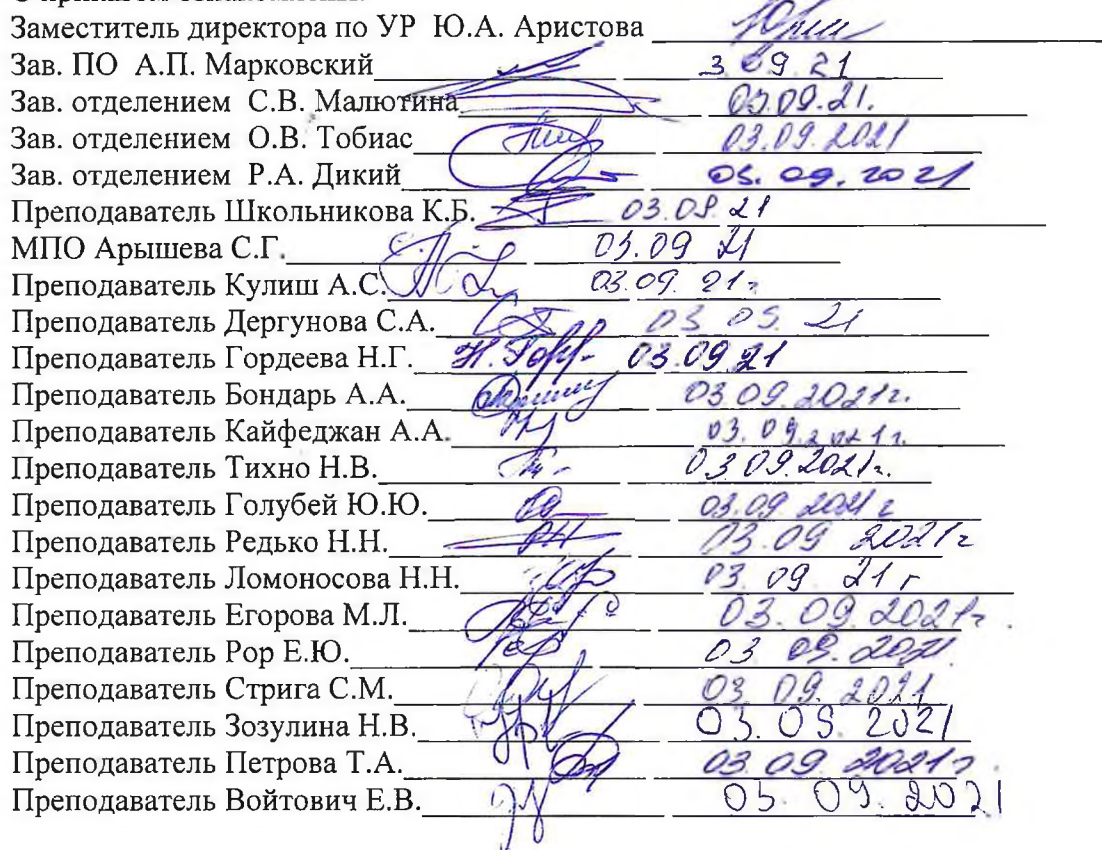 С приказом ознакомлены:
Заместитель директора по УР Ю.А. Аристова
Зав. ПО А.П. Марковский 3 09 21
Зав. отделением С.В. Малютина 03.09.21.
Зав. отделением О.В. Тобиас 03.09.2021
Зав. отделением Р.А. Дикий 03. 09. 2021
Преподаватель Школьникова К.Б. 03.09.21
МПО Арышева С.Г. 03.09 21
Преподаватель Кулиш А.С. 03.09. 21г
Преподаватель Дергунова С.А. 03 09. 21
Преподаватель Гордеева Н.Г. 03.09 21
Преподаватель Бондарь А.А. 03 09.2021г.
Преподаватель Кайфеджан А.А. 03. 09.2021г.
Преподаватель Тихно Н.В. 03 09.2021г.
Преподаватель Голубей Ю.Ю. 03.09 2021 г
Преподаватель Редько Н.Н. 03.09 2021г
Преподаватель Ломоносова Н.Н. 03 09 21 г
Преподаватель Егорова М.Л. 03.09.2021г.
Преподаватель Рор Е.Ю. 03 09. 2021.
Преподаватель Стрига С.М. 03 09. 2021
Преподаватель Зозулина Н.В. 03. 09 2021
Преподаватель Петрова Т.А. 03.09.2021г.
Преподаватель Войтович Е.В. 03. 09. 2021